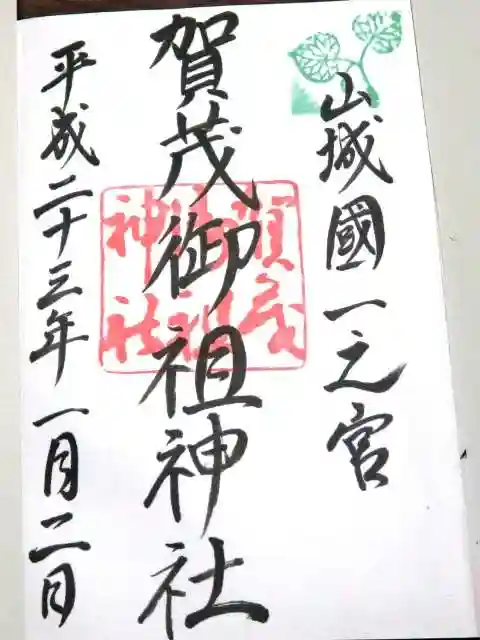 山城國一之宮
賀茂御祖神社
平成二十三年一月二日
賀茂
御祖
神社